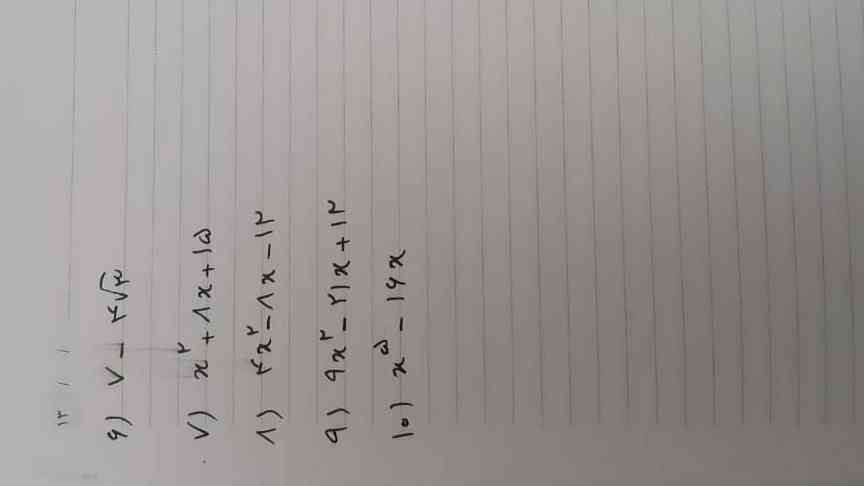 ۱۳ / /
۶) ۷ - ۴√۳
۷) x^۲ + ۸x + ۱۵
۸) ۴x^۲ - ۸x - ۱۲
۹) ۹x^۲ - ۲۱x + ۱۲
۱۰) x^۵ - ۱۶x